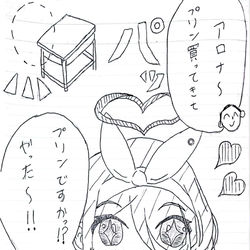 アロナ〜
プリン買ってきて
パッ
プリンですかっ!?
やった〜!!